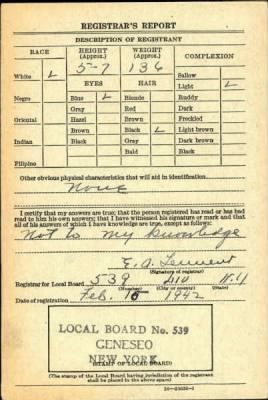 REGISTRAR'S REPORT
DESCRIPTION OF REGISTRANT
RACE HEIGHT (Approx.) WEIGHT (Approx.) COMPLEXION
5-7 136
White L Sallow
EYES HAIR Light L
Negro Blue L Blonde Ruddy
Gray Red Dark
Oriental Hazel Brown Freckled
Brown Black L Light brown
Indian Black Gray Dark brown
Bald Black
Filipino
Other obvious physical characteristics that will aid in identification
None
I certify that my answers are true; that the person registered has read or has had
read to him his own answers; that I have witnessed his signature or mark and that
all of his answers of which I have knowledge are true, except as follows:
Not to my knowledge
(Signature of registrar)
Registrar for Local Board 539 N.Y
(Number) (City or county) (State)
Date of registration Feb. 16 1942
LOCAL BOARD No. 539
GENESEO
NEW YORK
(STAMP OF LOCAL BOARD)
(The stamp of the Local Board having jurisdiction of the registrant
shall be placed in the above space)